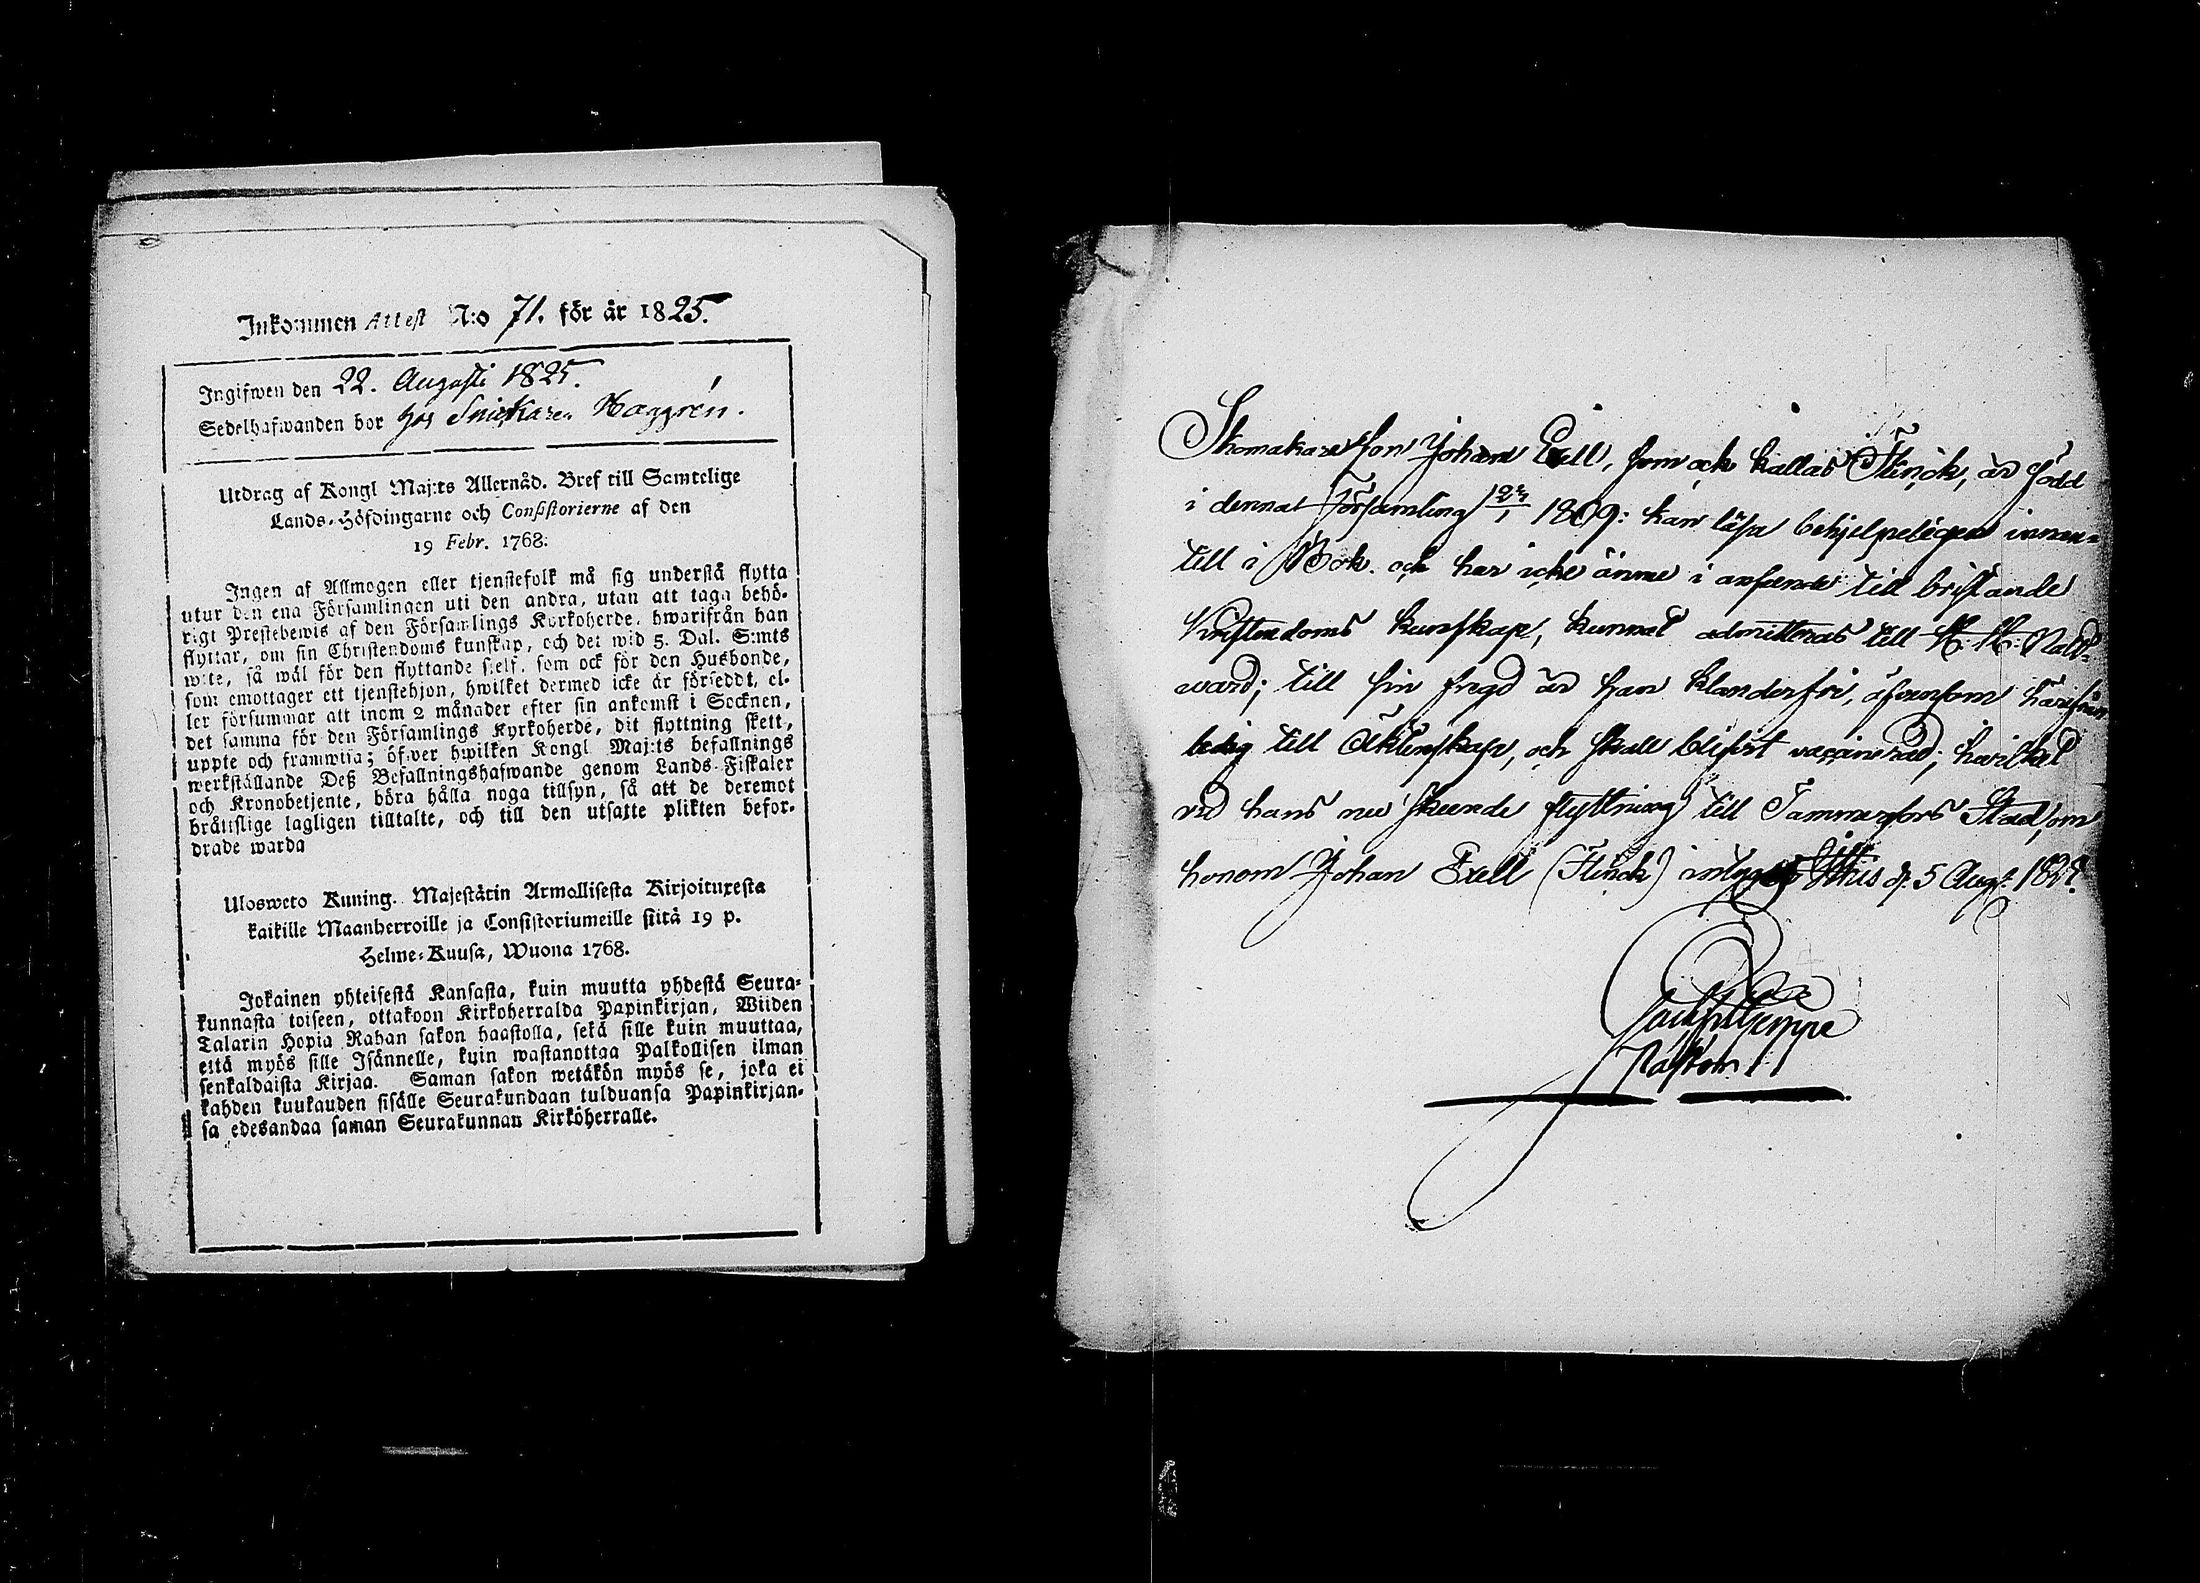 Inkommen Attest N:o 71. för år 1825.
Ingifwen den 22. Augusti 1825.
Sedelhafwanden bor hos Snickaren Haggrén.
Utdrag af Kongl Maj:ts Allernåd. Bref till Samtelige
Lands-Höfdingarne och Consistorierne af den
19 Febr. 1768.
Ingen af Allmogen eller tjenstefolk må sig understå flytta
utur den ena Församlingen uti den andra, utan att taga behö-
rigt Prestebewis af den Församlings Kyrkoherde, hwarifrån han
flyttar, om sin Christendoms kunskap, och det wid 5. Dal. S:mts
wite, så wäl för den flyttande sielf, som ock för den Husbonde,
som emottager ett tjenstehjon, hwilket dermed icke är försedt, el-
ler försummar att inom 2 månader efter sin ankomst i Socknen,
det samma för den Församlings Kyrkoherde, dit flyttning skett,
uppte och framwisa; öfwer hwilken Kongl Maj:ts befallnings
werkställande Deß Befallningshafwande genom Lands-Fiskaler
och Kronobetjente, böra hålla noga tillsyn, så att de deremot
bråttslige lagligen tilltalte, och till den utsatte plikten befor-
drade warda
Ulosweto Kuning. Majestätin Armollisesta Kirjoituxesta
kaikille Maanherroille ja Consistoriumeille siitä 19 p.
Helme-Kuusa, Wuona 1768.
Jokainen yhteisestä Kansasta, kuin muutta yhdestä Seura-
kunnasta toiseen, ottakoon Kirkoherralda Papinkirjan, Wiiden
Talarin Hopia Rahan sakon haastolla, sekä sille kuin muuttaa,
että myös sille Isännelle, kuin wastanottaa Palkollisen ilman
senkaldaista Kirjaa. Saman sakon wetäkön myös se, joka ei
kahden kuukauden sisälle Seurakundaan tulduansa Papinkirjan-
sa edesandaa saman Seurakunnan Kirköherralle.
Skomakareson Johan Exell, som ock kallas Flinck, är född
i denna Församling 23/1 1809: kan läsa behjelpeligen innan-
till i Bok. och har icke ännu i anseende till bristande
Kristendoms kunskap, kunnat admitteras till H. H. Natt-
ward; till sin fregd är han klanderfri, äfvensom härifrån
ledig till Äktenskap, och skall blifvit vaccinerad; hvilket
vid hans nu skeende flyttning till Tammerfors Stad, om
honom Johan Exell (Flinck) intygas Ithis d. 5 Aug. 1825.
Pastor